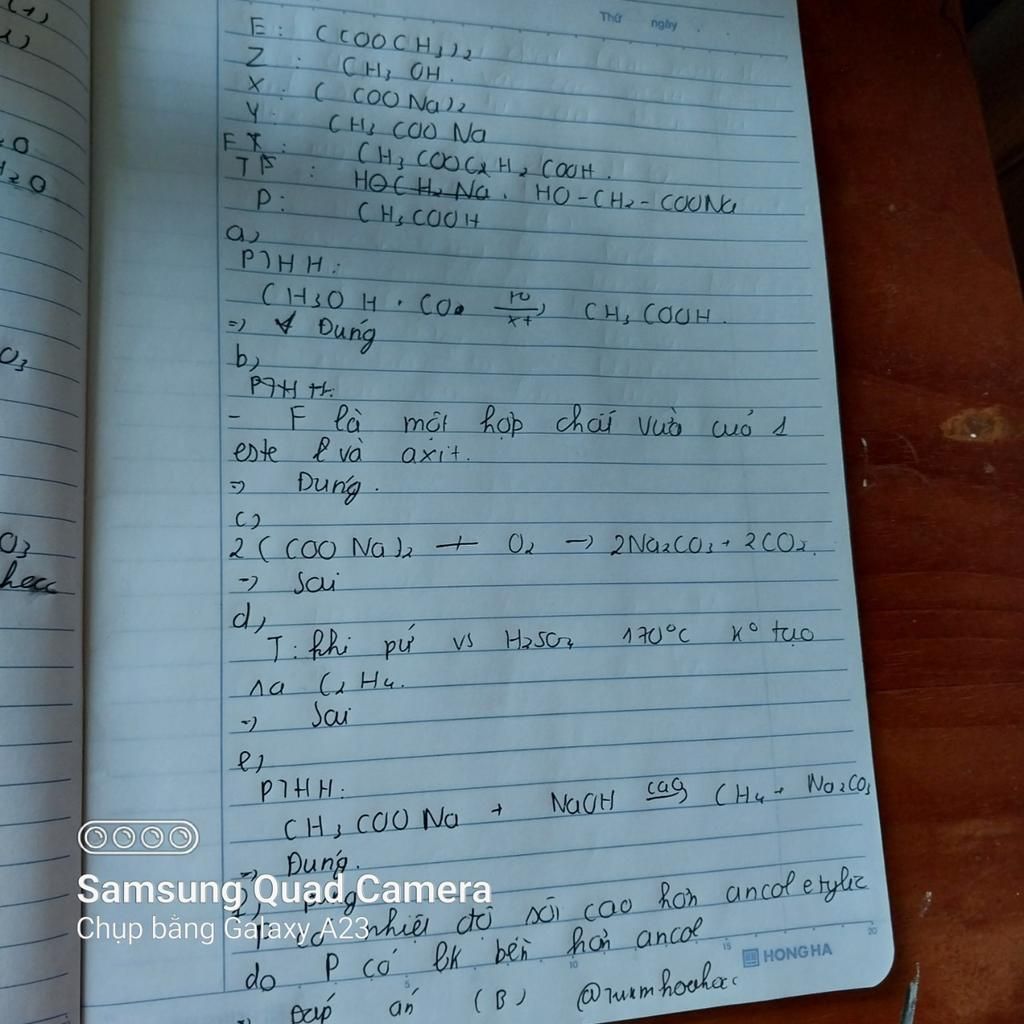 Thứ ngày
E: (COOCH3)2
Z: CH3 OH.
X: ( COO Na)2
Y: CH3 COO Na
F: CH3 COOCH2 COOH.
T: HOCH2 Na. HO-CH2-COONa
P: CH3COOH
a,
PTHH:
CH3OH + CO → CH3 COOH.
=> Đúng
b,
PTHH:
- F là một hợp chất vừa có 1
este và axit.
=> Đúng.
c)
2(COO Na)2 + O2 → 2Na2CO3 + 2CO2.
=> Sai
d,
T: khi pứ vs H2SO4 170°C k° tạo
ra C2H4.
=> Sai
e,
PTHH:
CH3 COO Na + NaOH CaO CH4 + Na2CO3
=> Đúng.
P có nhiệt độ sôi cao hơn ancol etylic
do P có lk bền hơn ancol
=> Đáp án (B)
HONG HA
5 10 15 20
Samsung Quad Camera
Chụp bằng Galaxy A23
O3
O3